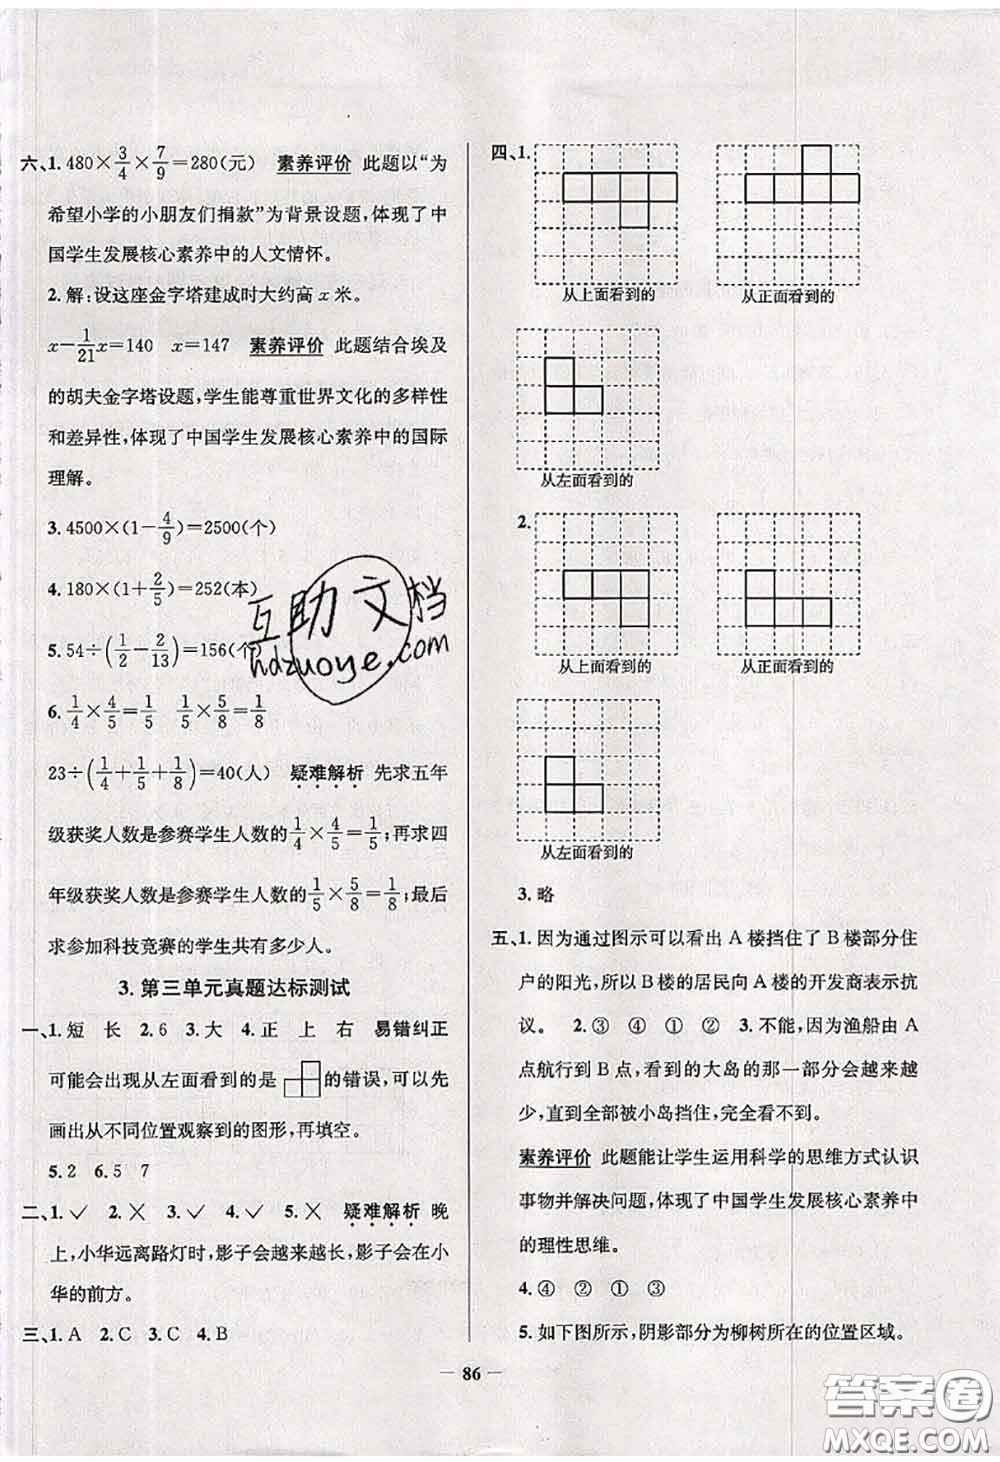 六、1. 480×3/4×7/9=280(元) 素养评价 此题以“为
希望小学的小朋友们捐款”为背景设题,体现了中
国学生发展核心素养中的人文情怀。
2. 解:设这座金字塔建成时大约高 x 米。
x−1/21x=140 x=147 素养评价 此题结合埃及
的胡夫金字塔设题,学生能尊重世界文化的多样性
和差异性,体现了中国学生发展核心素养中的国际
理解。
3. 4500×(1−4/9)=2500(个)
4. 180×(1+2/5)=252(本)
5. 54÷(1/2−2/13)=156(个)
6. 1/4×4/5=1/5 1/5×5/8=1/8
23÷(1/4+1/5+1/8)=40(人) 疑难解析 先求五年
级获奖人数是参赛学生人数的1/4×4/5=1/5;再求四
年级获奖人数是参赛学生人数的1/5×5/8=1/8;最后
求参加科技竞赛的学生共有多少人。
3. 第三单元真题达标测试
一、1. 短 长 2. 6 3. 大 4. 正 上 右 易错纠正
可能会出现从左面看到的是 的错误,可以先
画出从不同位置观察到的图形,再填空。
5. 2 6. 5 7
二、1. ✓ 2. ✕ 3. ✓ 4. ✓ 5. ✕ 疑难解析 晚
上,小华远离路灯时,影子会越来越长,影子会在小
华的前方。
三、1. A 2. C 3. C 4. B
四、1.
从上面看到的 从正面看到的
从左面看到的
2.
从上面看到的 从正面看到的
从左面看到的
3. 略
五、1. 因为通过图示可以看出 A 楼挡住了 B 楼部分住
户的阳光,所以 B 楼的居民向 A 楼的开发商表示抗
议。 2. ③ ④ ① ② 3. 不能,因为渔船由 A
点航行到 B 点,看到的大岛的那一部分会越来越
少,直到全部被小岛挡住,完全看不到。
素养评价 此题能让学生运用科学的思维方式认识
事物并解决问题,体现了中国学生发展核心素养中
的理性思维。
4. ④ ② ① ③
5. 如下图所示,阴影部分为柳树所在的位置区域。
— 86 —
互助文档
hdzuoye.com
答案圈
MXQE.COM